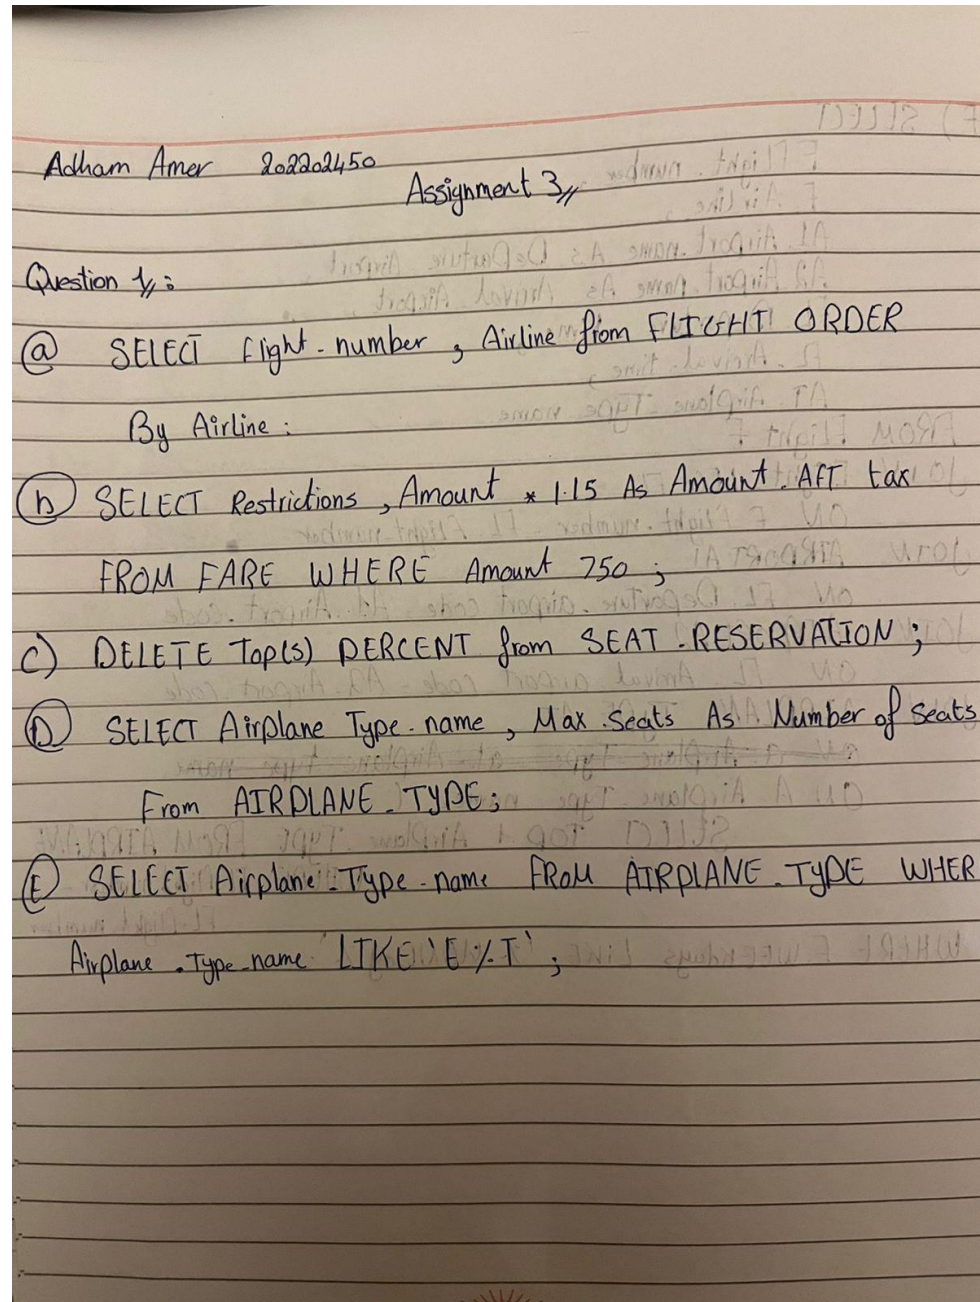 Adham Amer 202202450
Assignment 3//
Question 1// :
(a) SELECT flight-number , Airline from FLIGHT ORDER
By Airline ;
(b) SELECT Restrictions , Amount * 1.15 As Amount-AFT tax
FROM FARE WHERE Amount 750 ;
C) DELETE Top(s) PERCENT from SEAT-RESERVATION ;
(D) SELECT Airplane Type-name , Max-Seats As Number of Seats
From AIRPLANE-TYPE ;
(E) SELECT Airplane-Type-name FROM AIRPLANE-TYPE WHER
Airplane-Type-name LIKE 'E%T' ;